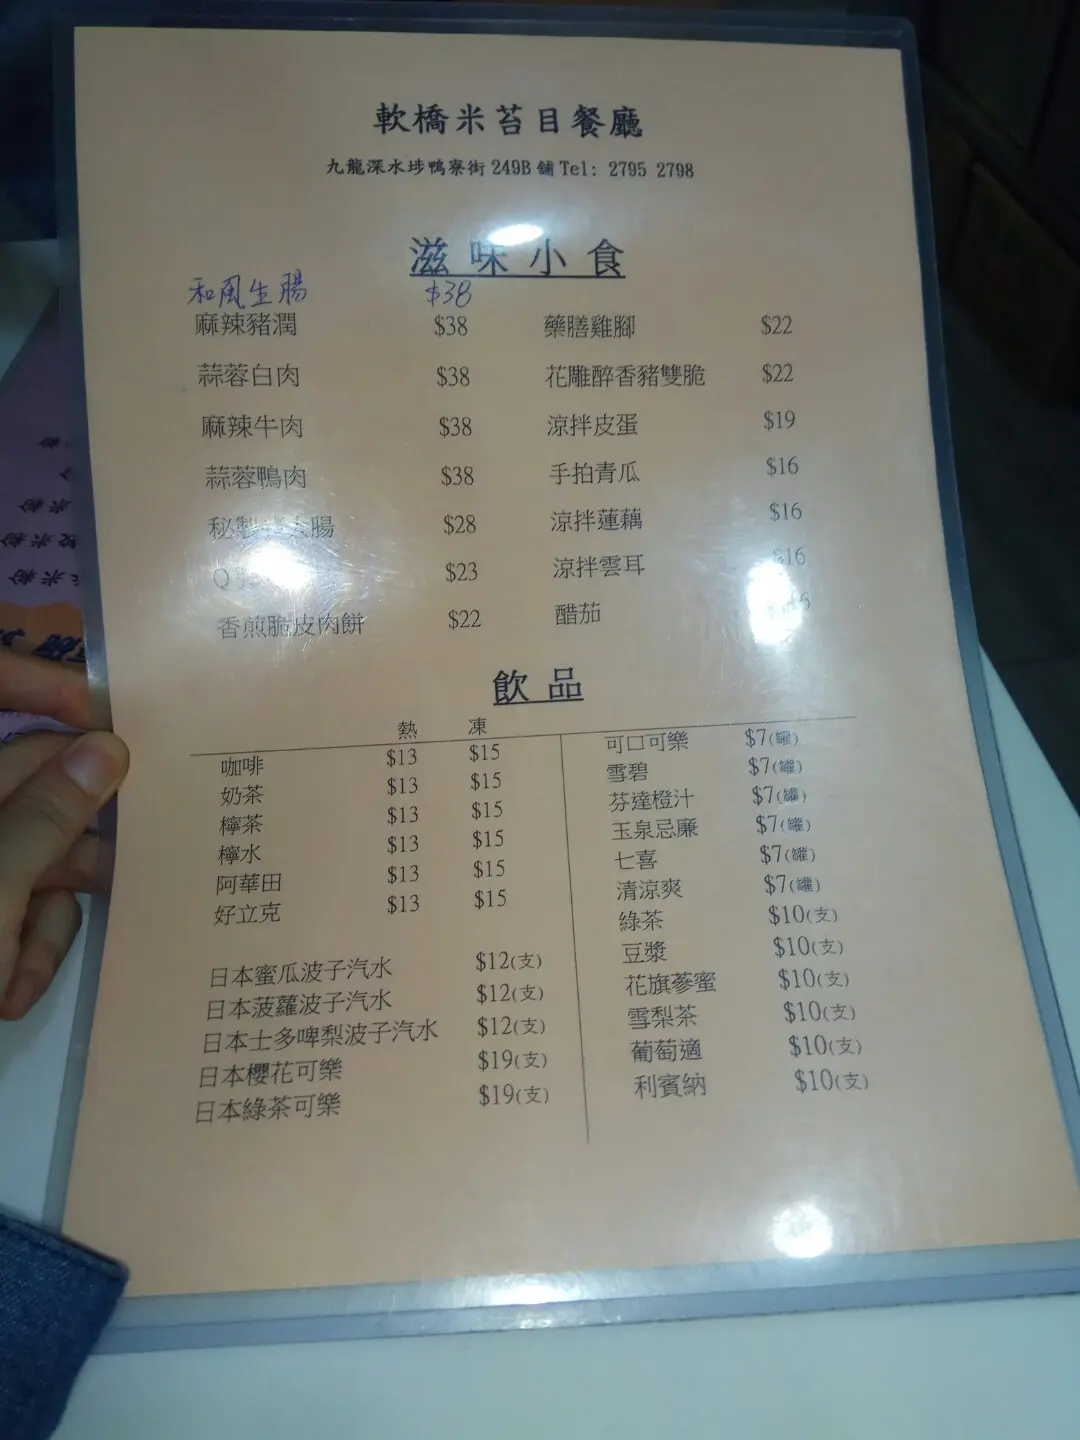 軟橋米苔目餐廳
九龍深水埗鴨寮街 249B 舖 Tel: 2795 2798
滋味小食
和風生腸 $38
麻辣豬潤 $38 藥膳雞腳 $22
蒜蓉白肉 $38 花雕醉香豬雙脆 $22
麻辣牛肉 $38 涼拌皮蛋 $19
蒜蓉鴨肉 $38 手拍青瓜 $16
秘製 大腸 $28 涼拌蓮藕 $16
Q $23 涼拌雲耳 $16
香煎脆皮肉餅 $22 醋茄
飲品
熱 凍
咖啡 $13 $15 可口可樂 $7(罐)
奶茶 $13 $15 雪碧 $7(罐)
檸茶 $13 $15 芬達橙汁 $7(罐)
檸水 $13 $15 玉泉忌廉 $7(罐)
阿華田 $13 $15 七喜 $7(罐)
好立克 $13 $15 清涼爽 $7(罐)
綠茶 $10(支)
日本蜜瓜波子汽水 $12(支) 豆漿 $10(支)
日本菠蘿波子汽水 $12(支) 花旗蔘蜜 $10(支)
日本士多啤梨波子汽水 $12(支) 雪梨茶 $10(支)
日本櫻花可樂 $19(支) 葡萄適 $10(支)
日本綠茶可樂 $19(支) 利賓納 $10(支)